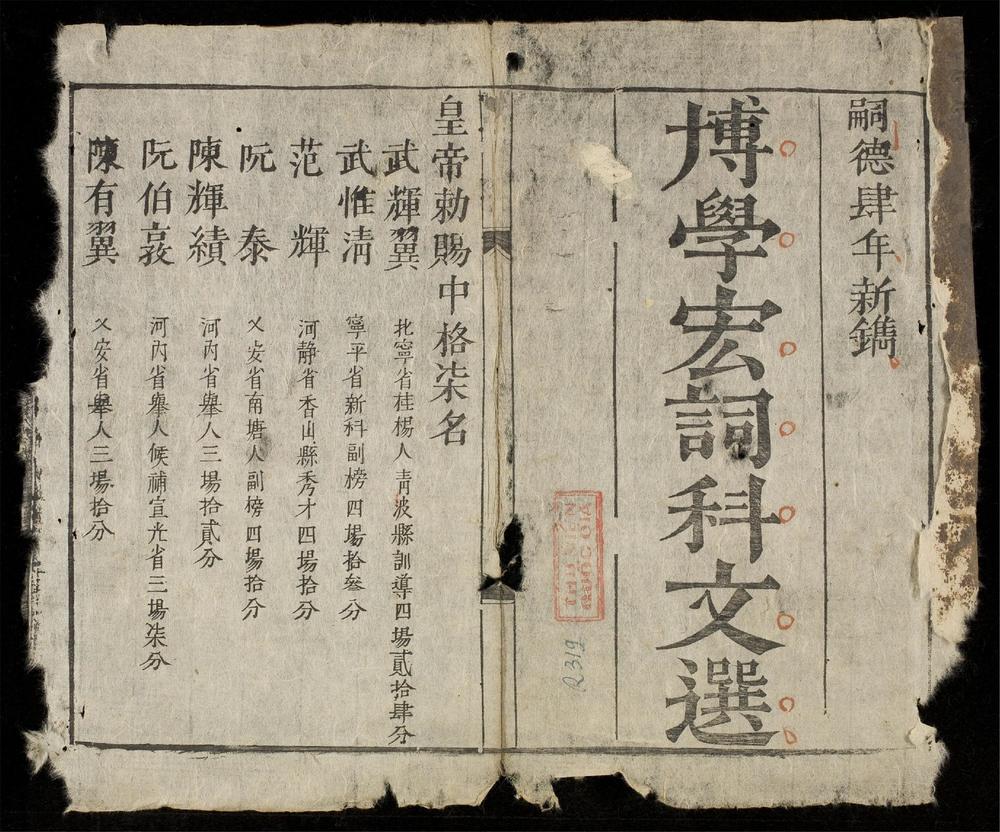 嗣德肆年新鐫
博學宏詞科文選
皇帝勅賜中格柒名
武輝翼 北寧省桂楊人青波縣訓導四場貳拾肆分
武惟清 寧平省新科副榜四場拾叄分
范輝 河静省香山縣秀才四場拾分
阮泰 乂安省南塘人副榜四場拾分
陳輝績 河内省舉人三場拾貳分
阮伯 河内省舉人候補宣光省三場柒分
陳有翼 乂安省舉人三場拾分
THƯ VIỆN
QUỐC GIA
R319